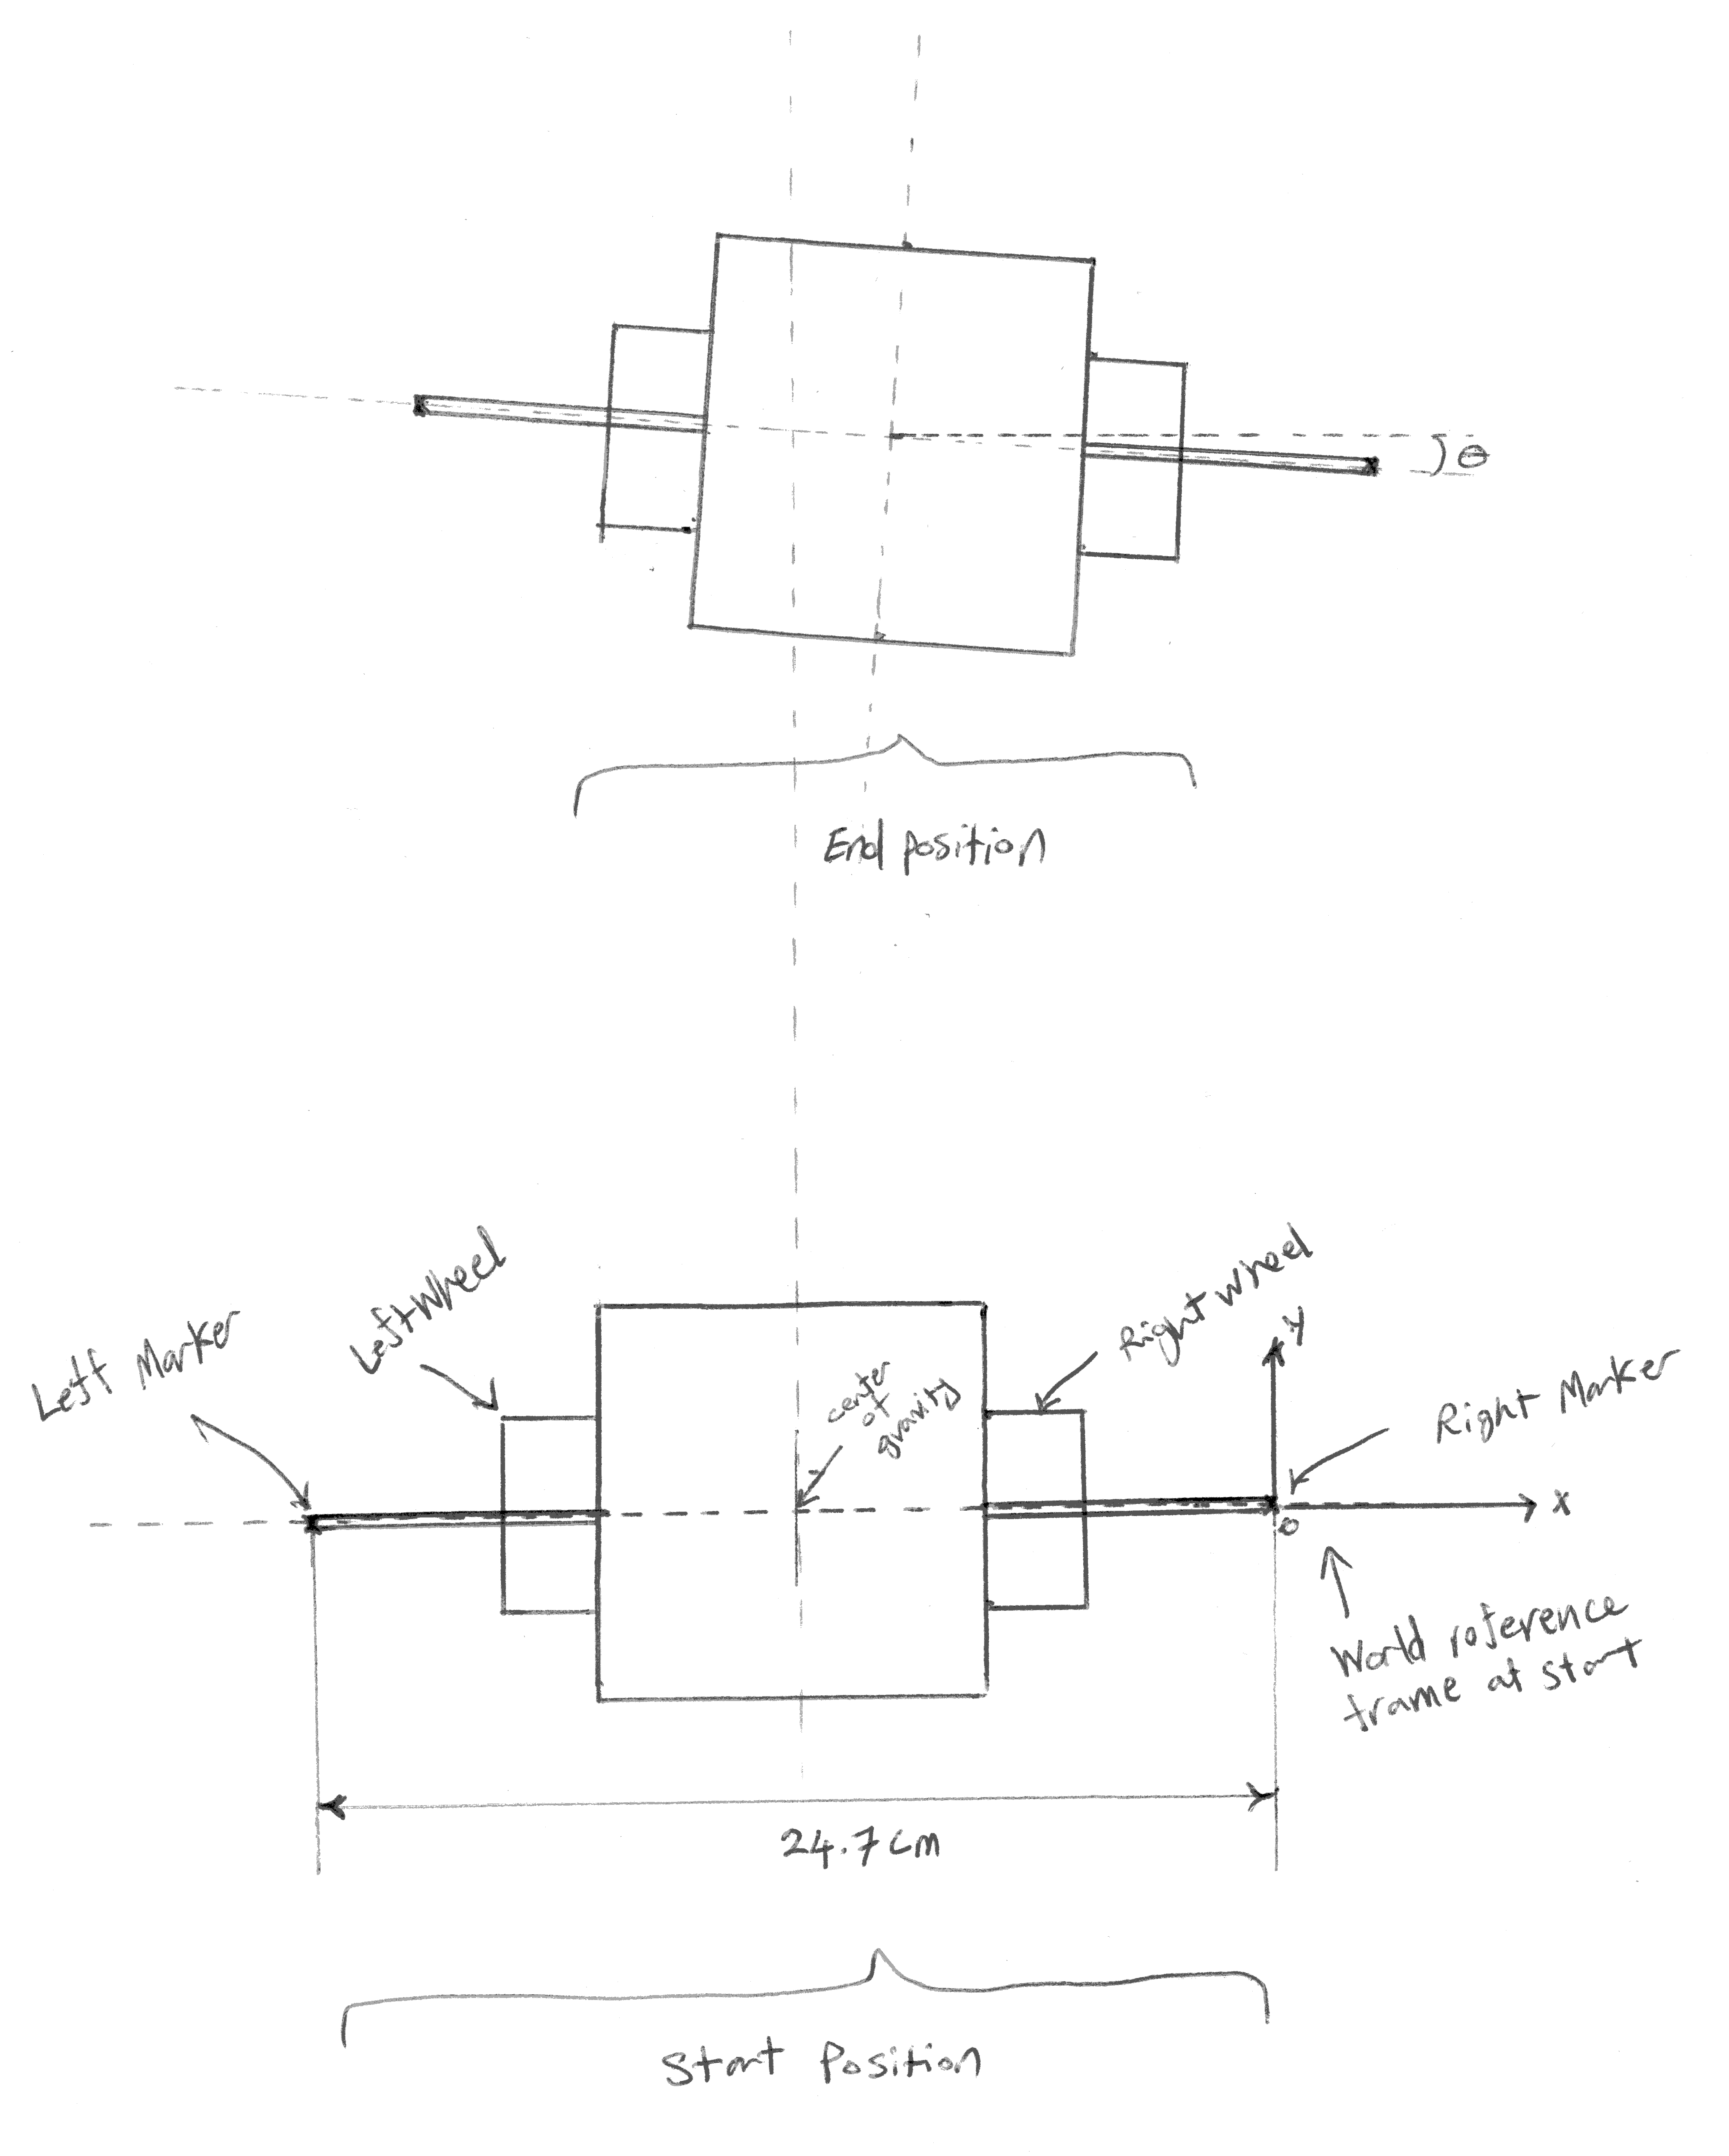 θ
End position
Left Marker
Left Wheel
center
of
gravity
Right wheel
Y
Right Marker
X
o
World reference
frame at start
24.7 cm
Start Position